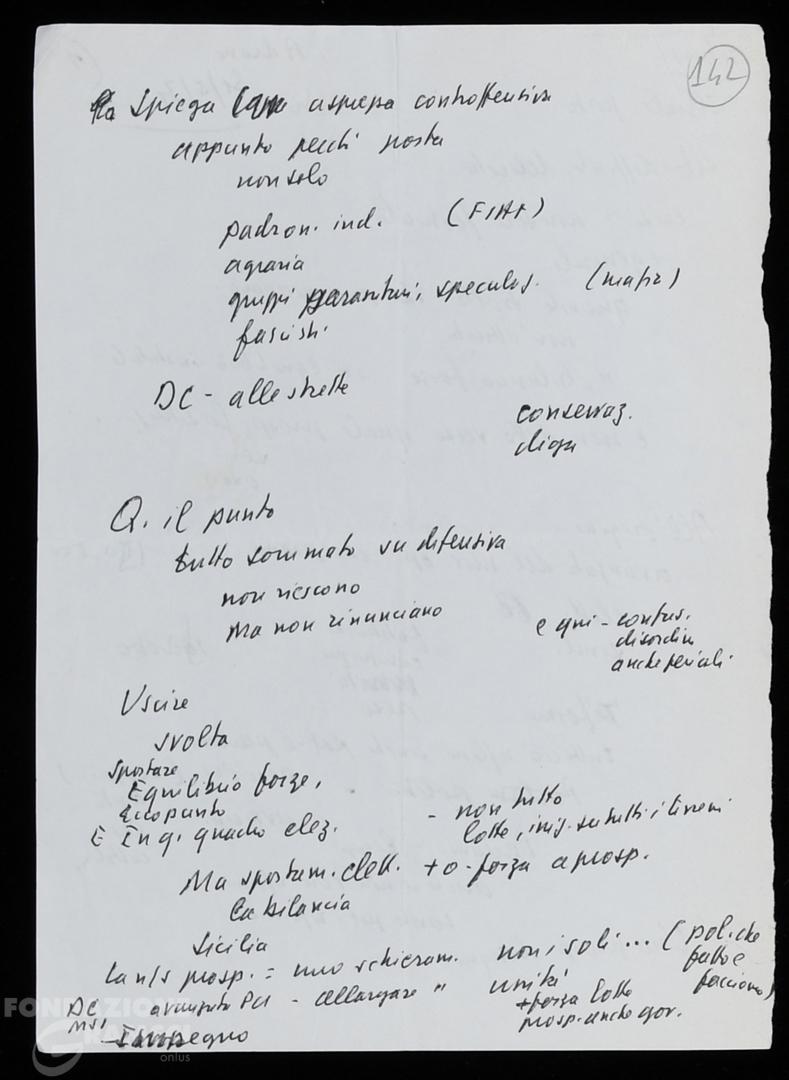 142
Ciò spiega aspra controffensiva
appunto perché nostra
non solo
padron. ind. (FIAT)
agraria
gruppi parassitari, speculat. (mafia)
fascisti
DC - alle strette
conservaz.
diga
Q. il punto
tutto sommato su difensiva
non riescono
Ma non rinunciano
e qui - confus.
disordini
anche pericoli
Uscire
svolta
Spostare
Equilibrio forze,
Ecco punto
E In q. quadro elez.
- non tutto
lotte, iniz. su tutti i terreni
Ma spostam. elett. + o - forza a prosp.
la bilancia
Sicilia
La n/s prosp. = nuovo schieram. non i soli ... (pol. che
fatto e
facciamo)
DC
MSI
avanzata PCI - allargare " unità
+ forza lotte
prosp. anche gov.
- Impegno
FONDAZIONE
GRAMSCI
onlus